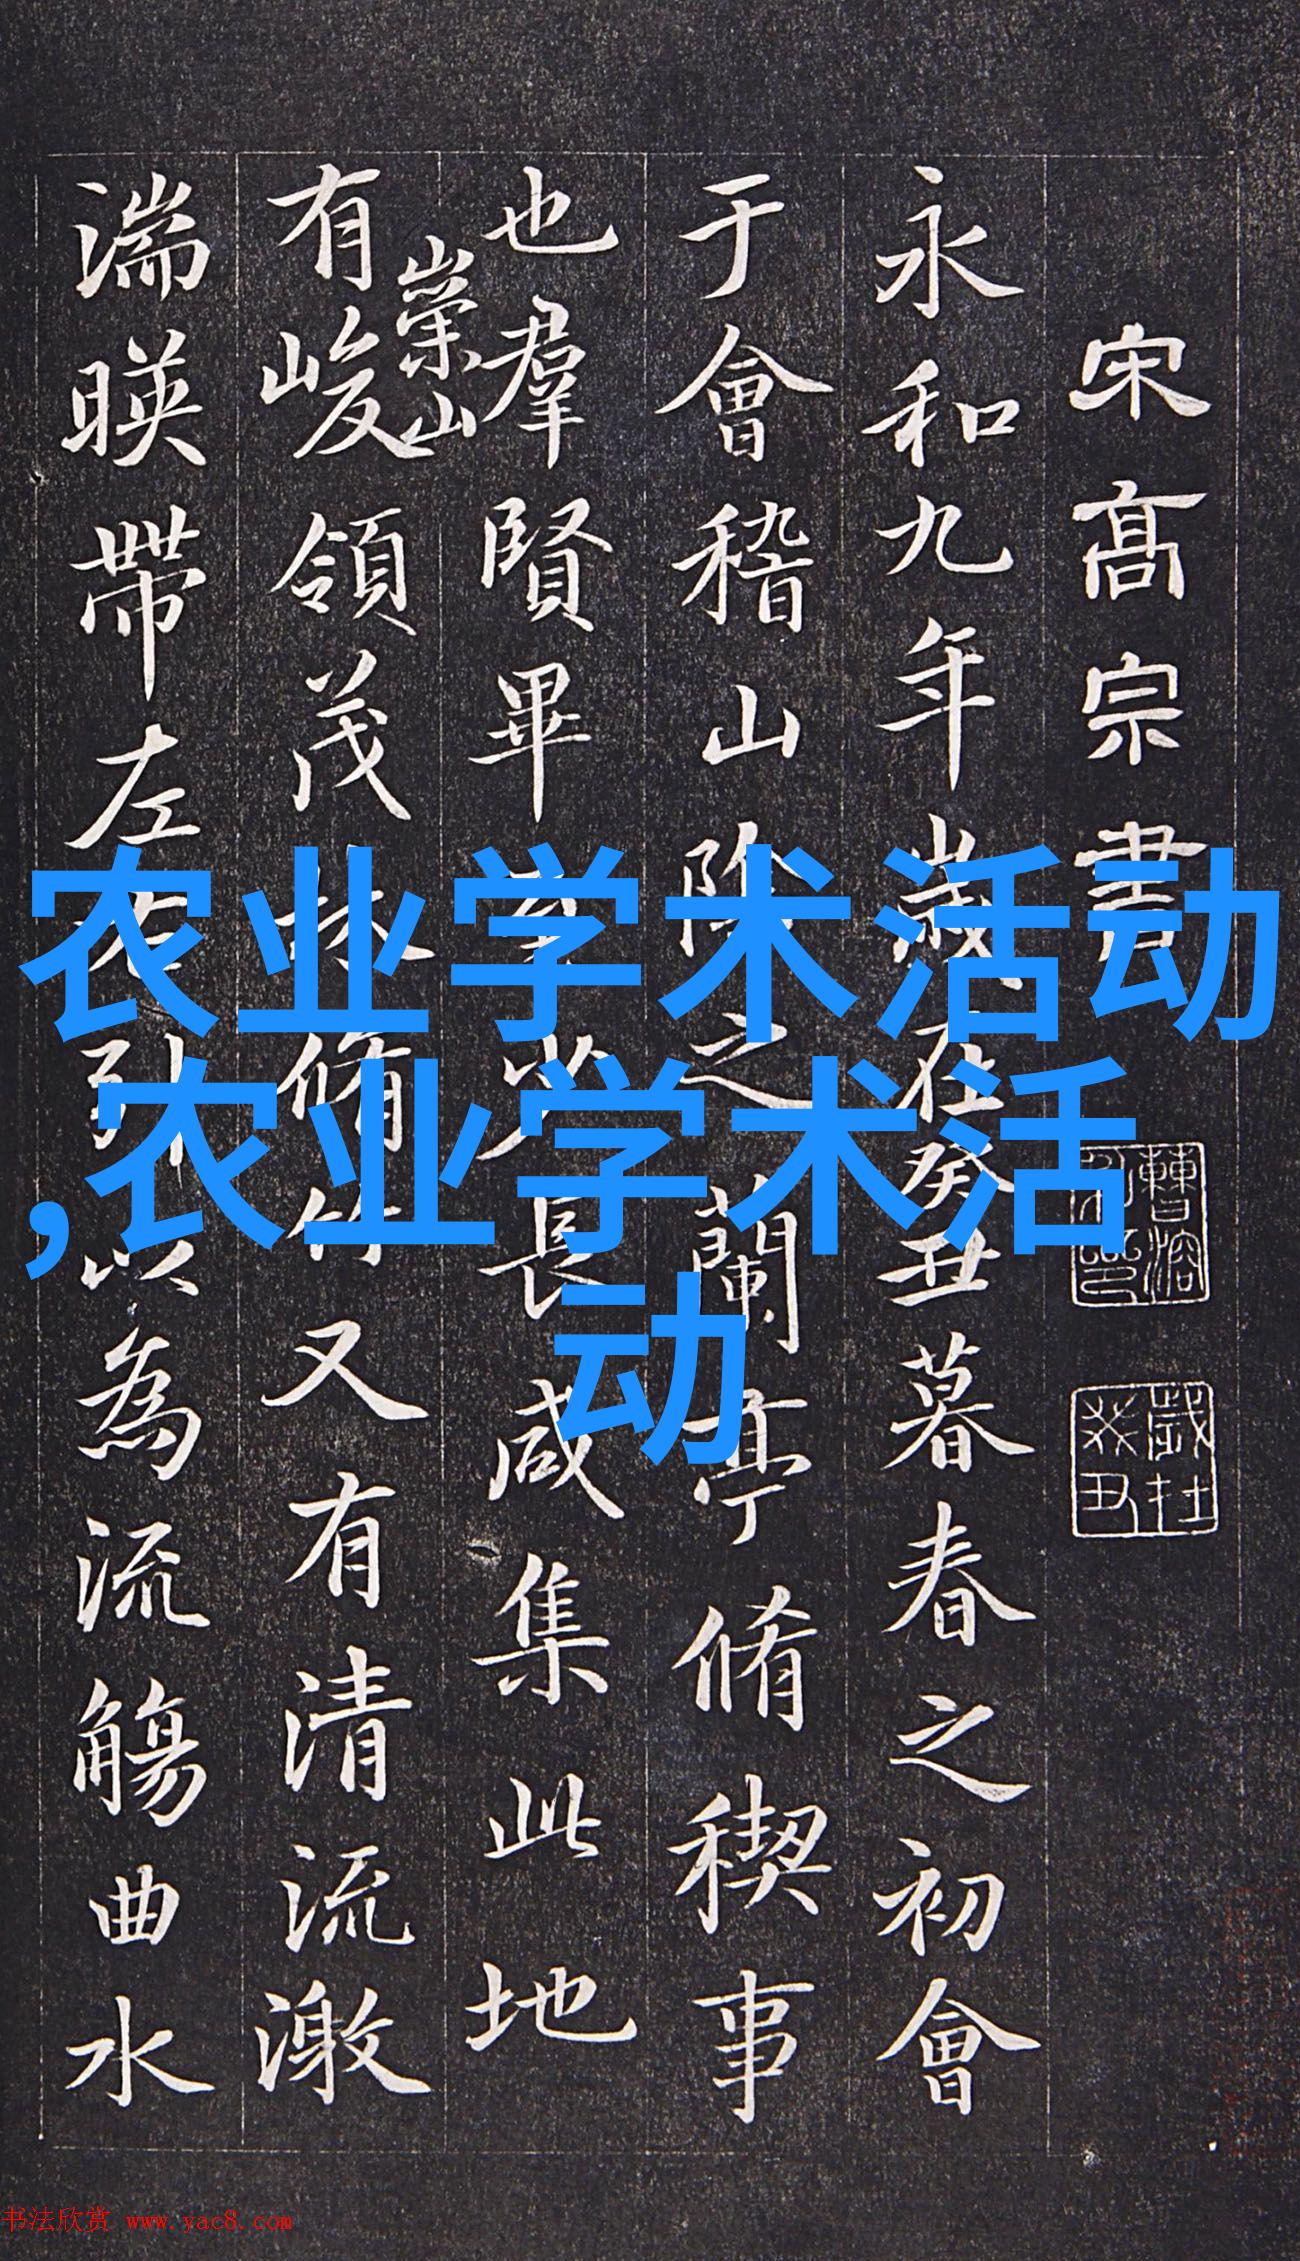 宋高宗書
永和九年歲在癸丑暮春之初會
于會稽山陰之蘭亭脩稧事
也羣賢畢至少長咸集此地
崇山
有峻領茂林脩竹又有清流激
湍暎帶左右引以為流觴曲水
農业学术活动
,农业学术活
动
歲在
癸丑
书法欣赏 www.yac8.com